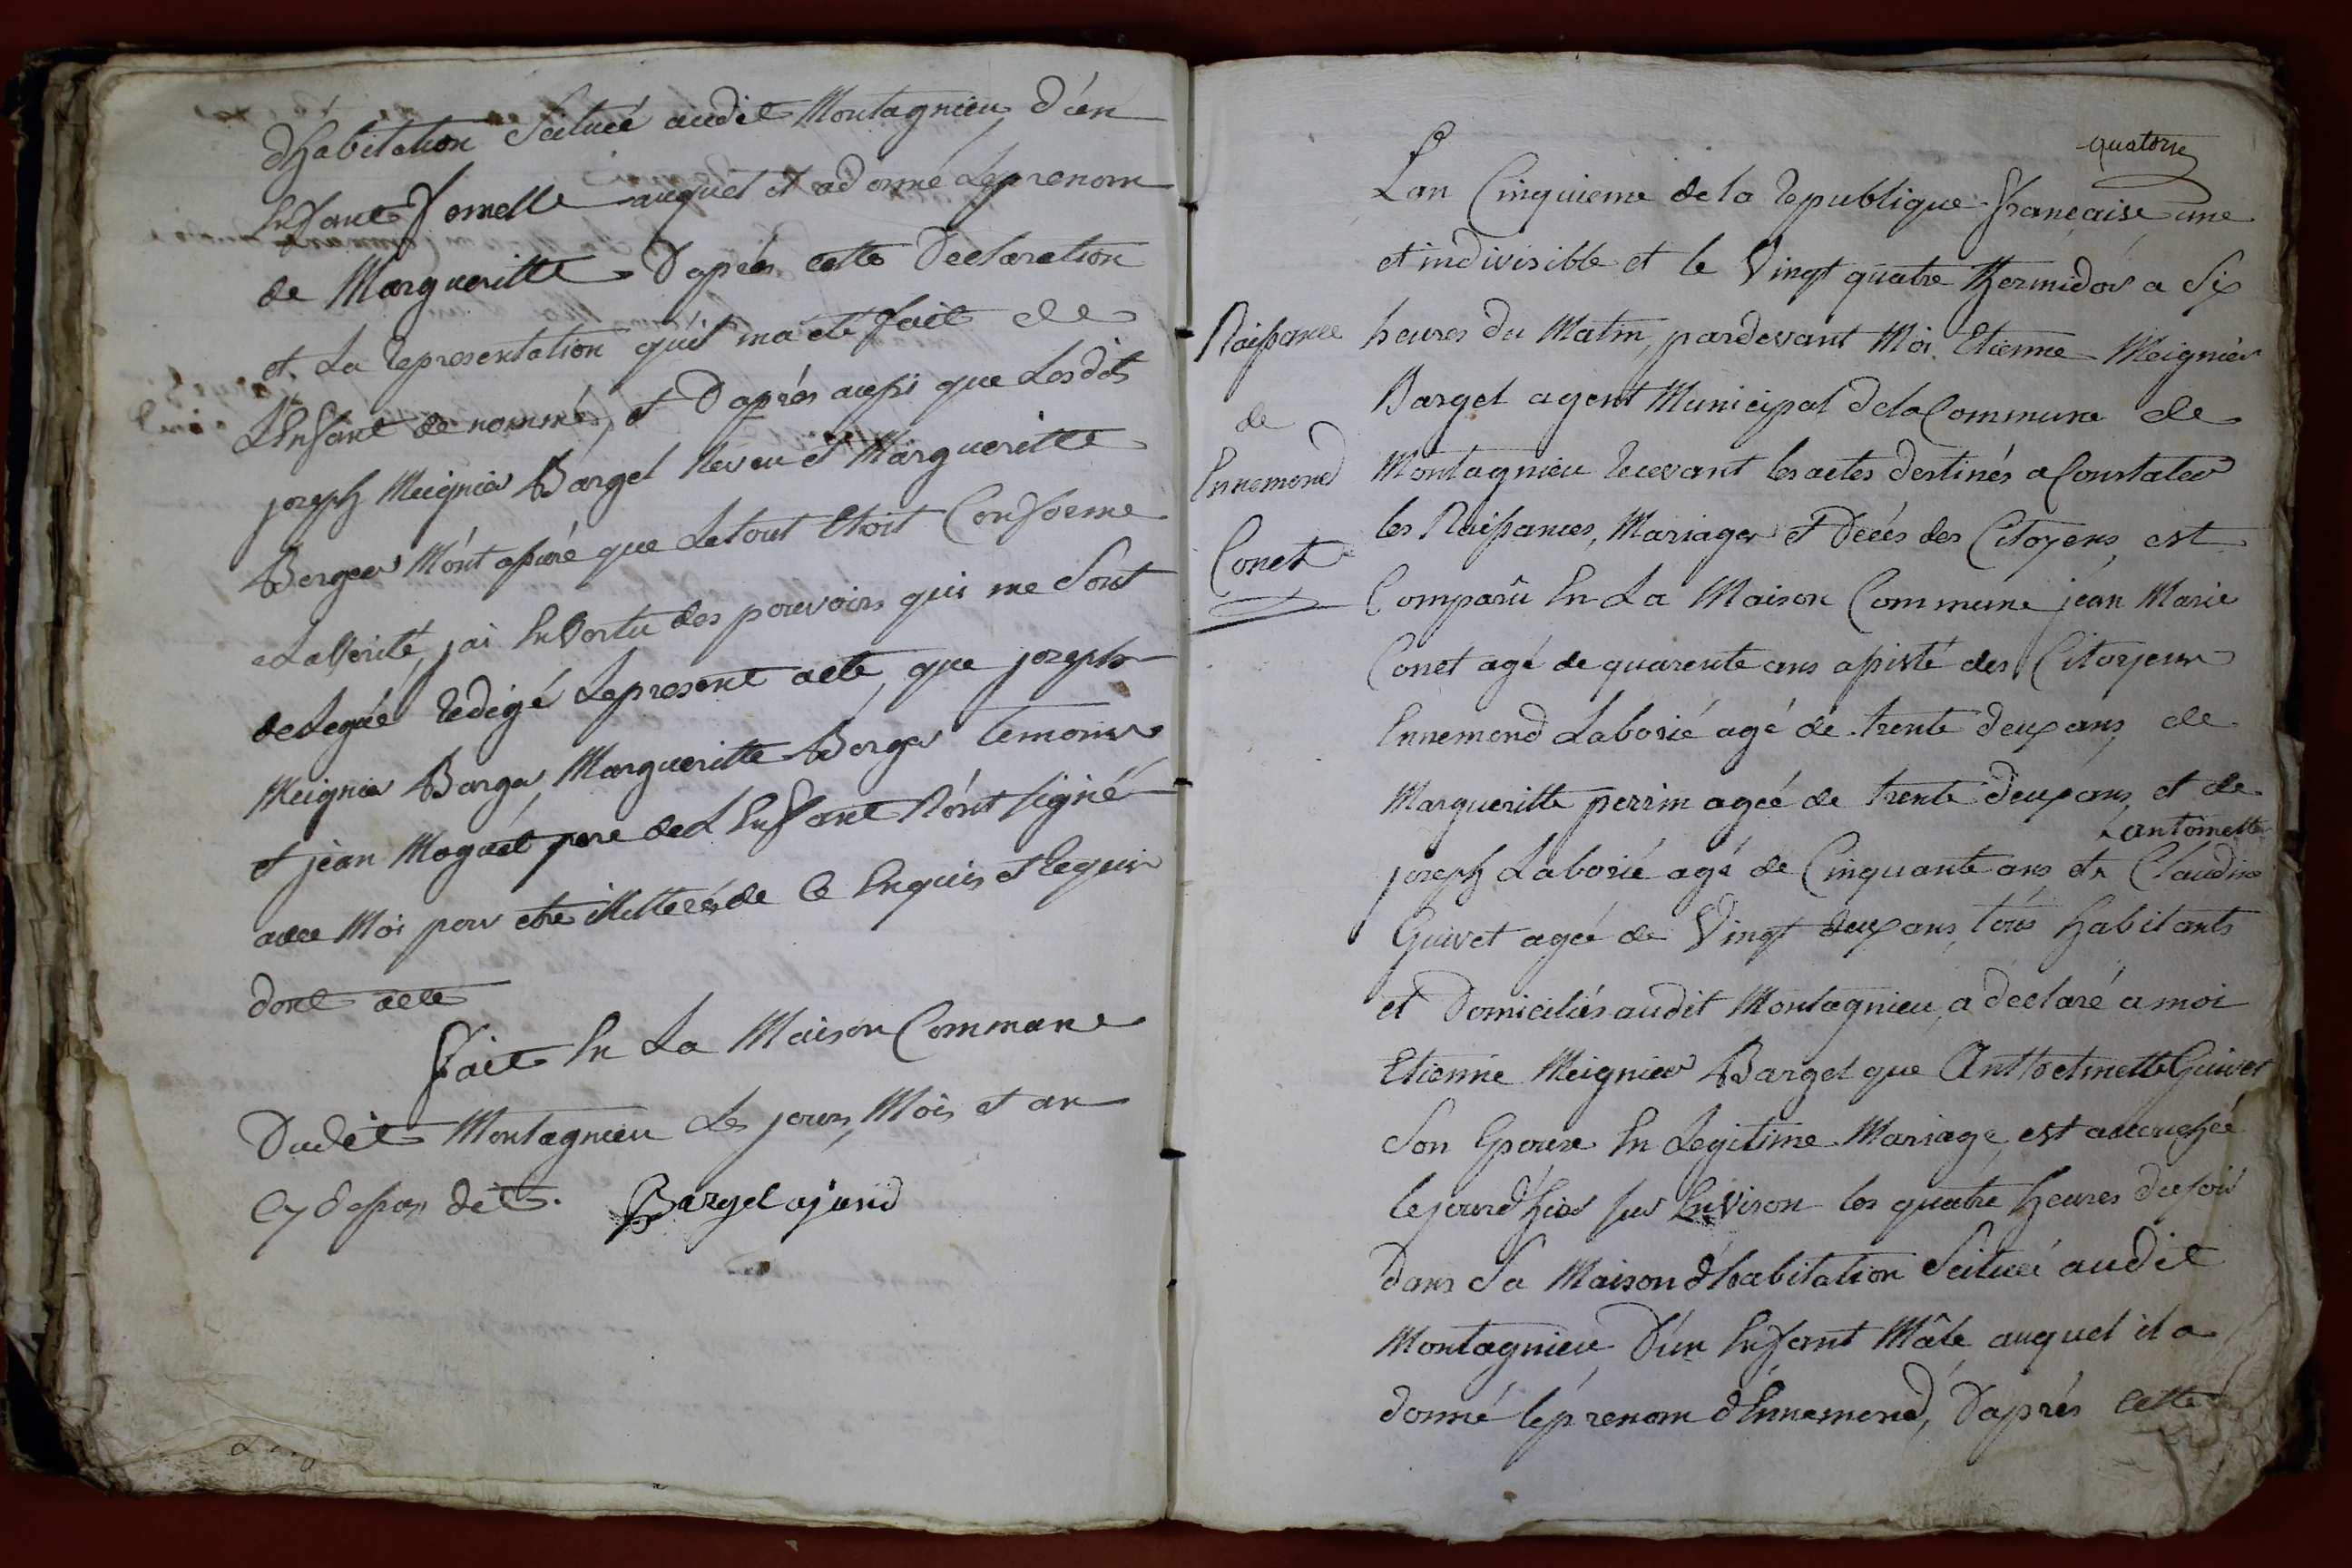 dhabitation Scituée audit Montagnieu d'un
Enfant femelle auquel il a donné Le prenom
de Margueritte D'après cette Declaration
et La representation qu'il ma eté fait de
L'Enfant denommé, et D'après aussi que Lesdits
joseph Meignier Bargel Neveu et Margueritte
Berger M'ont assuré que Le tout Etoit Conforme
a La Verité, j'ai En Vertu des pouvoirs qui me Sont
delegués redigé Le present acte, que joseph
Meignier Bargel, Margueritte Berger temoins
et jean père de L'Enfant N'ont signé
avec Moi pour etre illitterés de Ce Enquis et Requis
dont acte
Fait En La Maison Commune
Dudit Montagnieu Les jours, Mois et an
Cy dessus dit. Bargel ajand
quatorze
Lan Cinquieme de la republique française une
et indivisible et le Vingt quatre thermidor a Six
heures du Matin, pardevant Moi Etienne Meignier
Bargel agent Municipal de la Commune de
Montagnieu recevant les actes destinés a Constater
les Naissances, Mariages et Décés des Citoyens, est
Comparû En La Maison Commune jean Marie
Conet agé de quarente ans assisté des Citoyens
Ennemond Laborié agé de trente deux ans, de
Margueritte perrin agée de trente deux ans, et de
antoinette
joseph Laborié agé de Cinquante ans et Claudine
Guivet agée de Vingt deux ans, tous habitants
et Domiciliés audit Montagnieu, a declaré a moi
Etienne Meignier Bargel que Anthoetinette Guivet
Son Epouse En Legitime Mariage, est accouchée
le jourd'hier sur Environ les quatre heures du soir
Dans Sa Maison d'habitation Scituée audit
Montagnieu D'un Enfant Mâle, auquel il a
donné le prenom d'Ennemond, D'après cette
Naissance
de
Ennemond
Conet